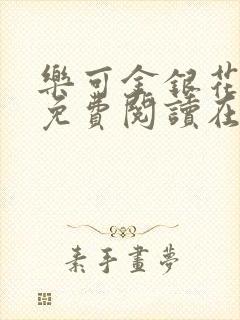 樂可金銀花
免費閱讀在
素手畫夢